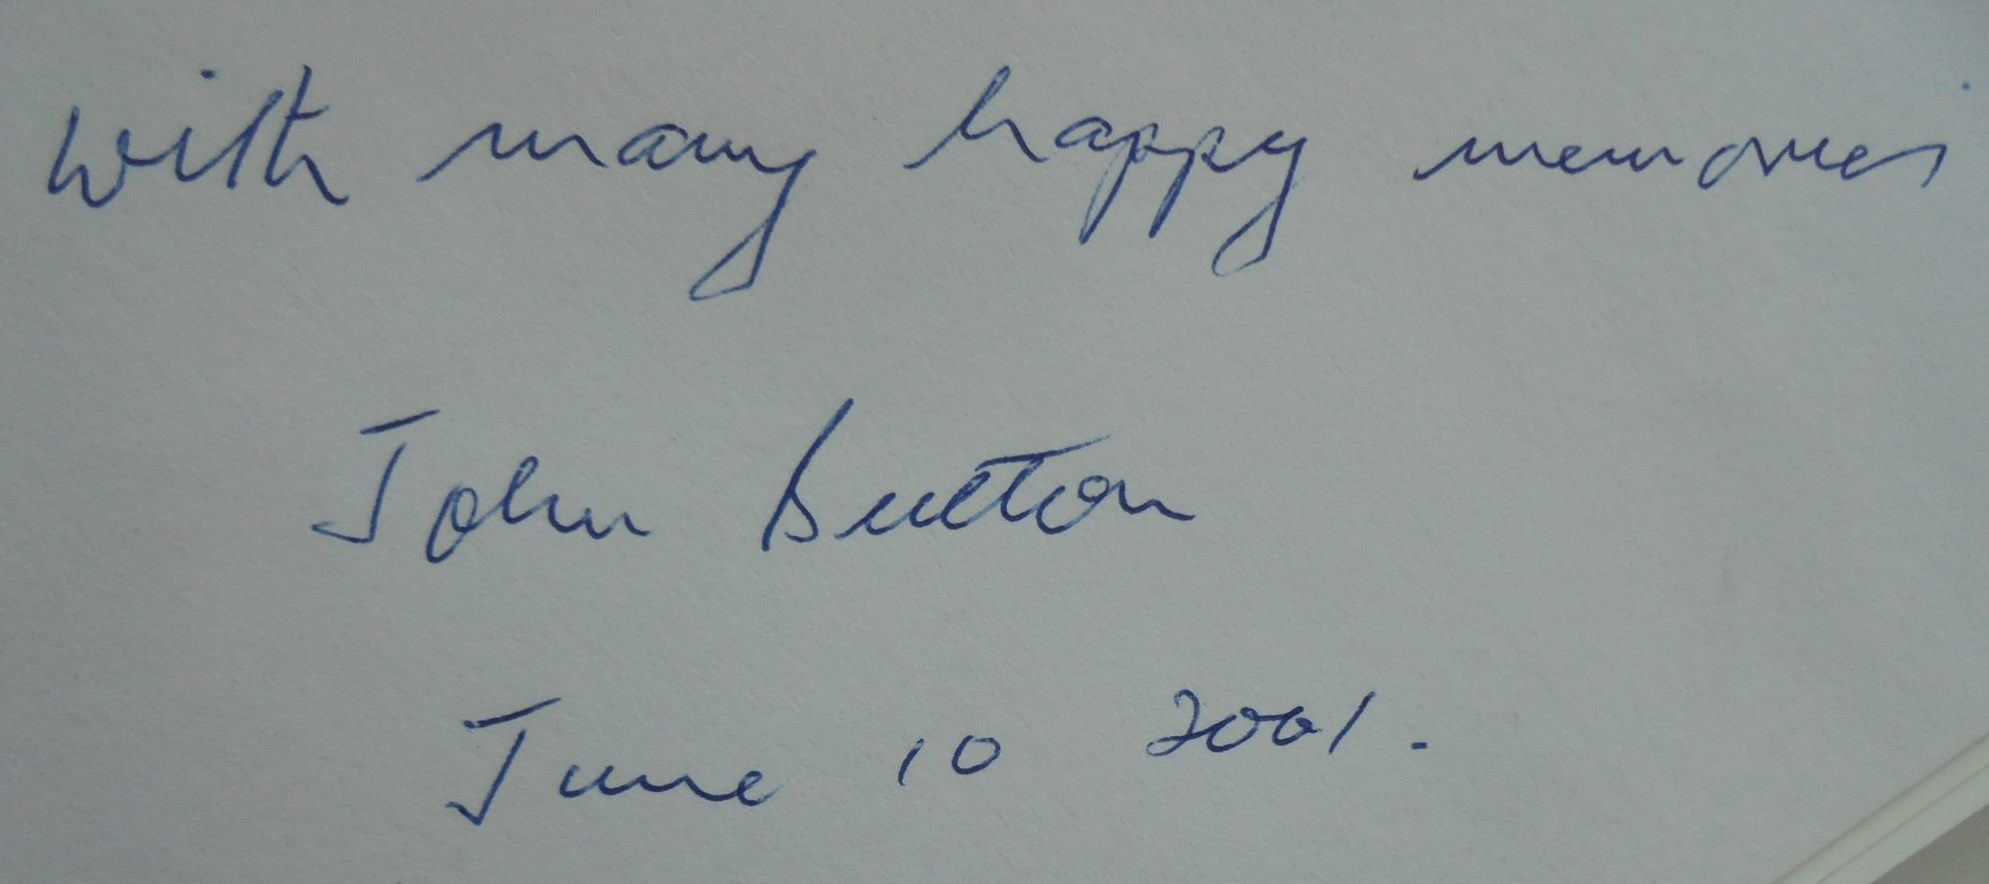 with many happy memories
John Sutton
June 10 2001.